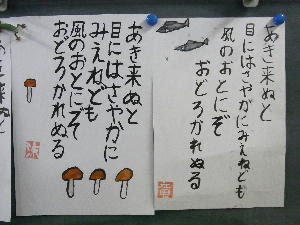 あき来ぬと
目にはさやかにみえねども
風のおとにぞ
おどろかれぬる
あき来ぬと
目にはさやかに
みえねども
風のおとにぞ
おどろかれぬる